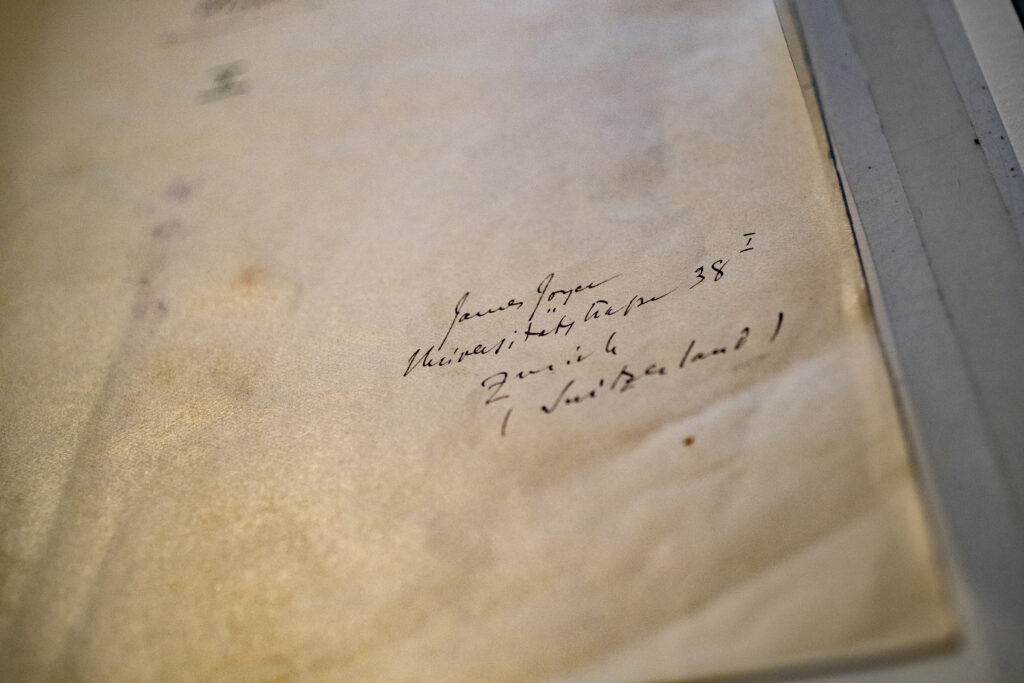 James Joyce
Universitätstrasse 38 I
Zurich
(Switzerland)